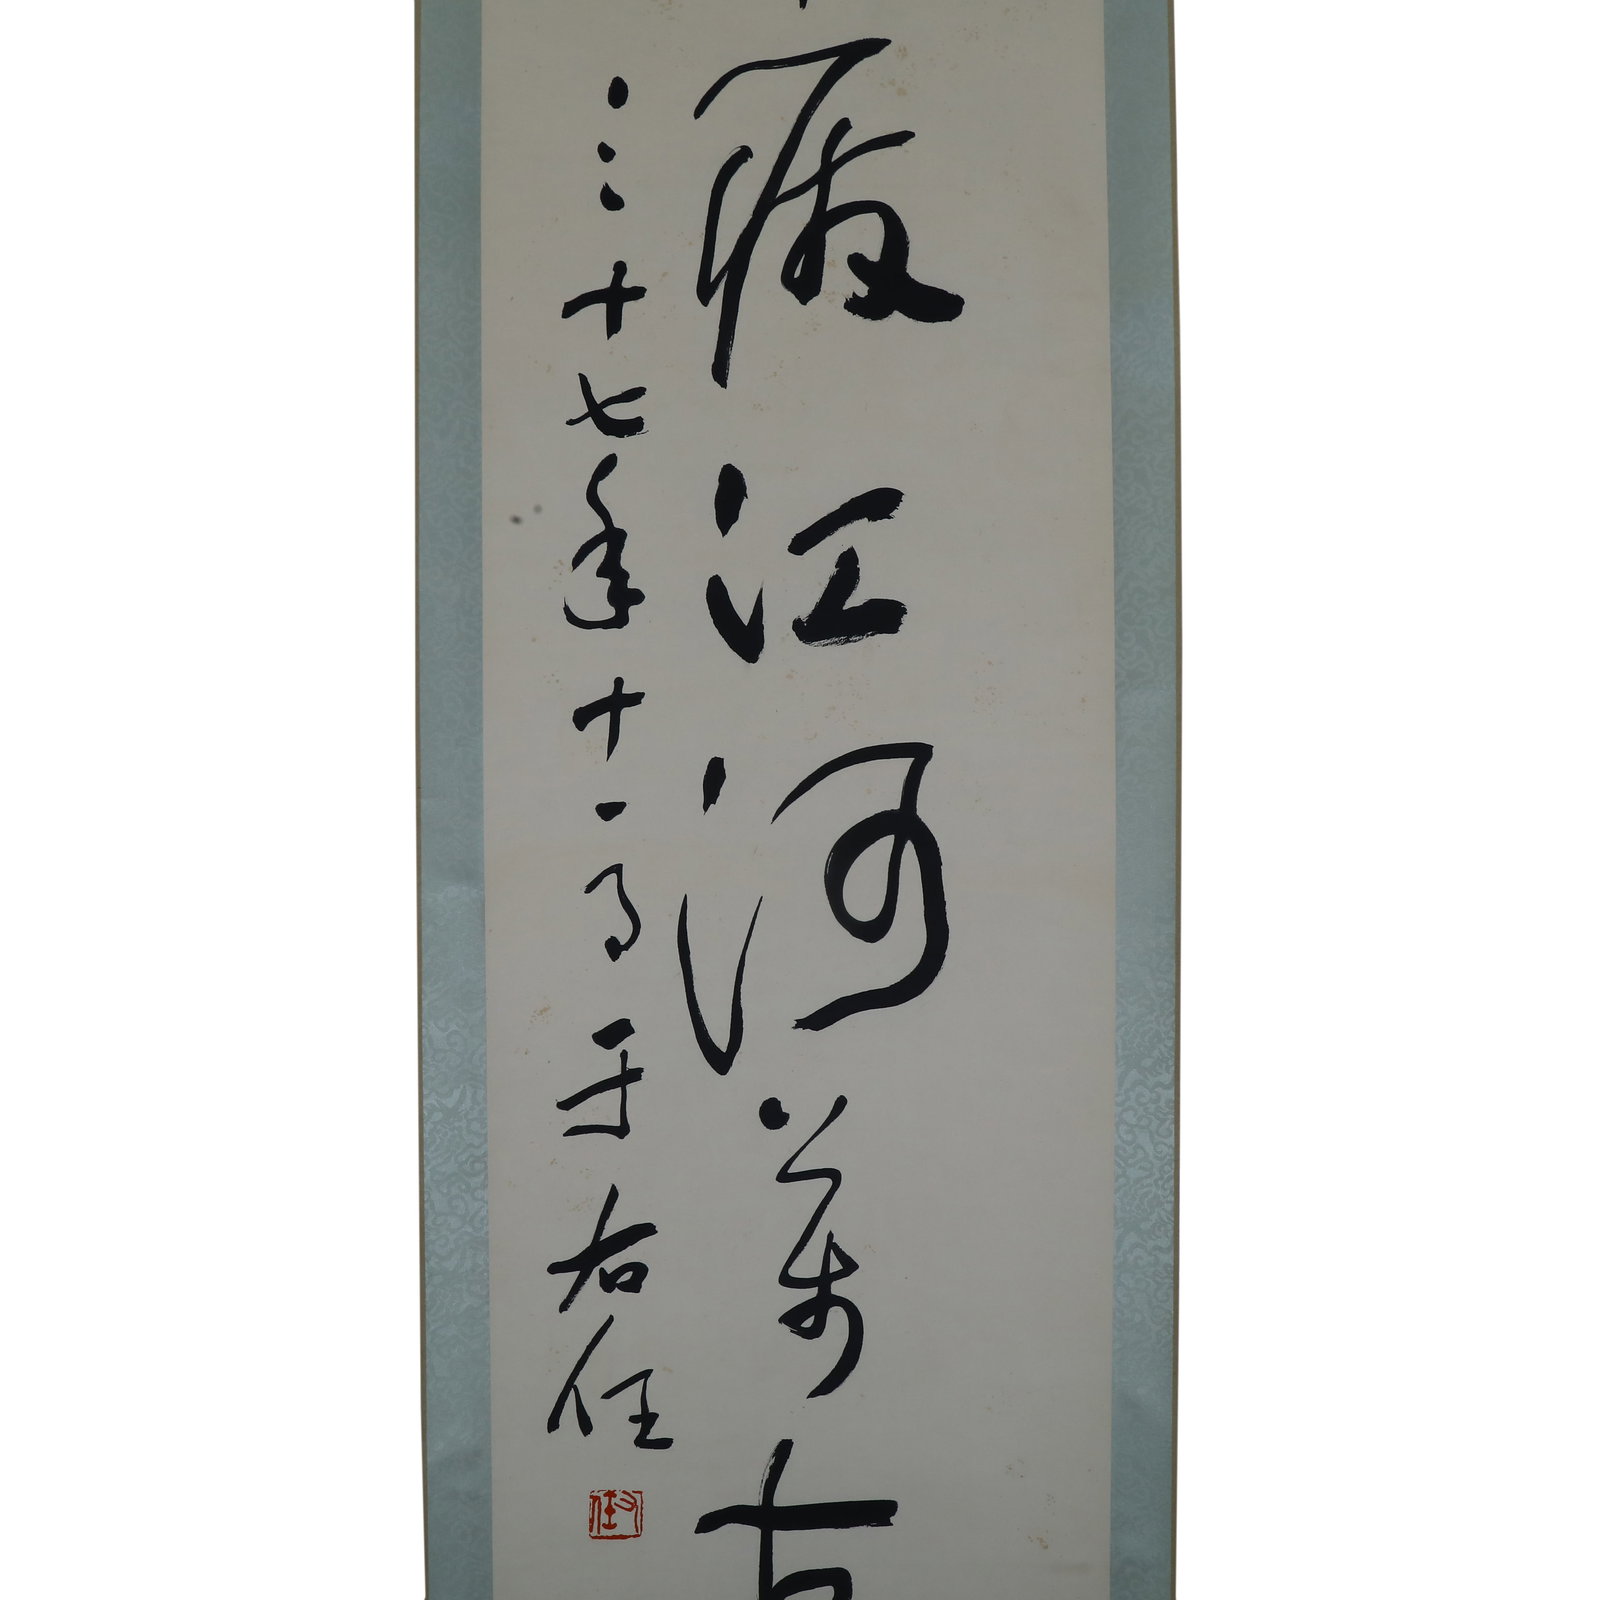 廢江河萬古
三十七年十一月于右任
右任